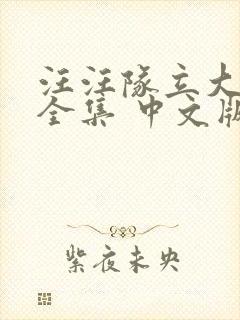 汪汪队立大
全集 中文版
紫夜未央